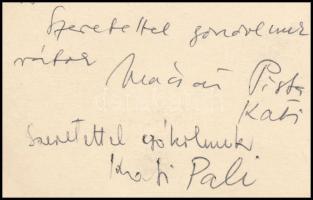 Szeretettel gondolunk
rátok
Macsári Pista
Kati
Szeretettel csókolunk
Kati Pali